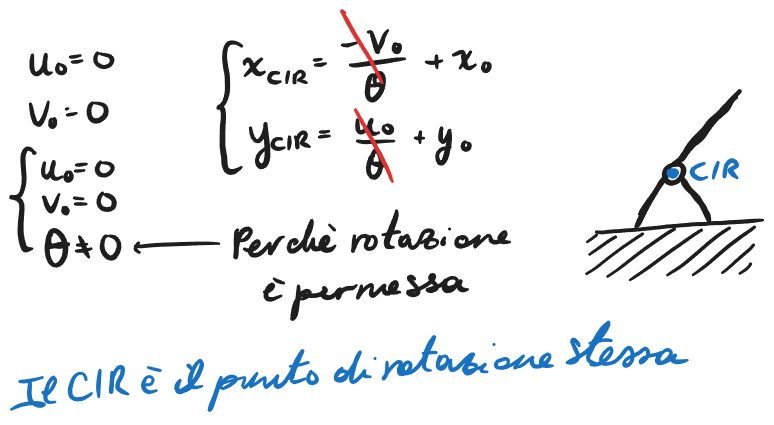 u₀ = 0
v₀ = 0
{ u₀ = 0
v₀ = 0
θ ≠ 0 ← Perchè rotazione
è permessa
{ x_CIR = -v₀/θ + x₀
y_CIR = u₀/θ + y₀
CIR
Il CIR è il punto di rotazione stessa